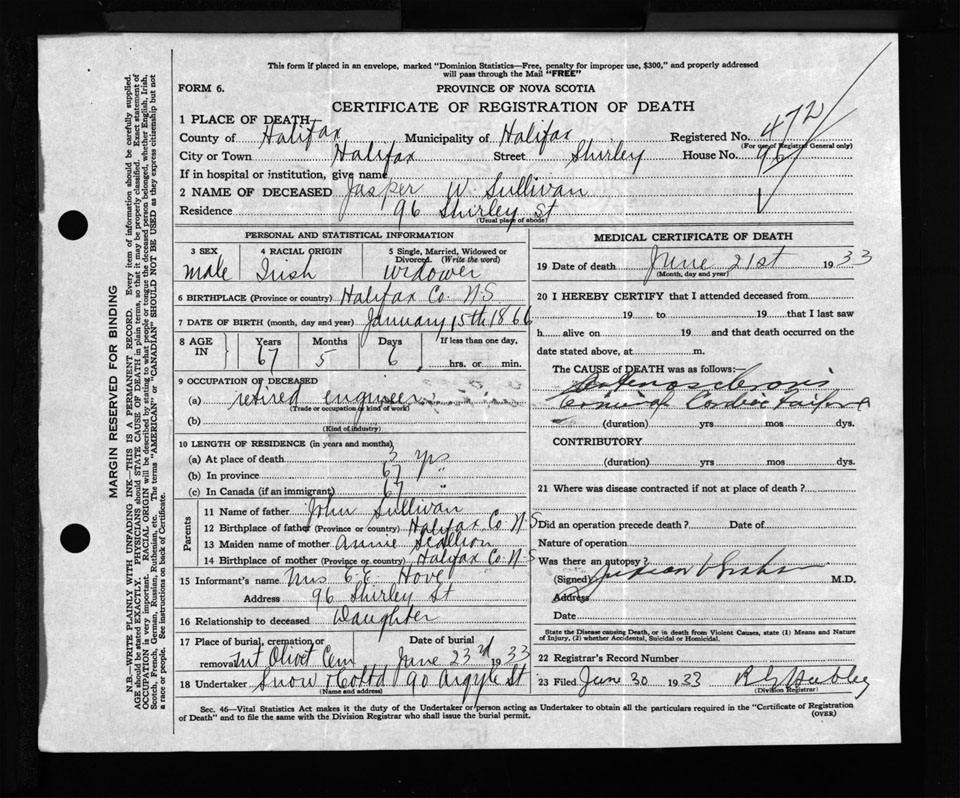 This form if placed in an envelope, marked "Dominion Statistics—Free, penalty for improper use, $300," and properly addressed
will pass through the Mail "FREE"
FORM 6.
PROVINCE OF NOVA SCOTIA
CERTIFICATE OF REGISTRATION OF DEATH
1 PLACE OF DEATH—
County of Halifax Municipality of Halifax Registered No. 472
(For use of Registrar General only)
City or Town Halifax Street Shirley House No. 96
If in hospital or institution, give name
2 NAME OF DECEASED Jasper W. Sullivan
Residence 96 Shirley St
(Usual place of abode)
PERSONAL AND STATISTICAL INFORMATION
3 SEX 4 RACIAL ORIGIN 5 Single, Married, Widowed or
Divorced. (Write the word)
male Irish widower
6 BIRTHPLACE (Province or country) Halifax Co. N.S
7 DATE OF BIRTH (month, day and year) January 15th 1866
8 AGE IN Years Months Days If less than one day,
67 5 6 hrs. or min.
9 OCCUPATION OF DECEASED
(a) retired engineer
(Trade or occupation or kind of work)
(b)
(Kind of industry)
10 LENGTH OF RESIDENCE (in years and months)
(a) At place of death 3 yrs
(b) In province 67 "
(c) In Canada (if an immigrant) 67 "
Parents
11 Name of father John Sullivan
12 Birthplace of father (Province or country) Halifax Co. N-S
13 Maiden name of mother Annie Scallion
14 Birthplace of mother (Province or country) Halifax Co. N-S
15 Informant's name Mrs E. E.
Address 96 Shirley St
16 Relationship to deceased Daughter
17 Place of burial, cremation or Date of burial
removal Mt Olivet Cem June 23rd 1933
18 Undertaker Snow & Co Ltd 90 Argyle St
(Name and address)
MEDICAL CERTIFICATE OF DEATH
19 Date of death June 21st 1933
(Month, day and year)
20 I HEREBY CERTIFY that I attended deceased from
19 to 19 that I last saw
h alive on 19 and that death occurred on the
date stated above, at m.
The CAUSE OF DEATH was as follows:—
Arteriosclerosis
Cardiac Failure
(duration) yrs mos dys.
CONTRIBUTORY
(duration) yrs. mos. dys.
21 Where was disease contracted if not at place of death?
Did an operation precede death? Date of
Nature of operation
Was there an autopsy?
(Signed) M.D.
Address
Date
State the Disease causing Death, or in death from Violent Causes, state (1) Means and Nature
of Injury, (2) whether Accidental, Suicidal or Homicidal.
22 Registrar's Record Number
23 Filed June 30 1933
(Division Registrar)
Sec. 46—Vital Statistics Act makes it the duty of the Undertaker or person acting as Undertaker to obtain all the particulars required in the "Certificate of Registration
of Death" and to file the same with the Division Registrar who shall issue the burial permit.
(OVER)
MARGIN RESERVED FOR BINDING
N.B.—WRITE PLAINLY WITH UNFADING INK—THIS IS A PERMANENT RECORD. Every item of information should be carefully supplied.
AGE should be stated EXACTLY. PHYSICIANS should STATE CAUSE OF DEATH in plain terms, so that it may be properly classified. Exact statement of
OCCUPATION is very important. RACIAL ORIGIN will be described by stating to what people or tongue the deceased person belonged, whether English, Irish,
Scotch, French, German, Russian, Ruthenian, etc. The terms "AMERICAN" or "CANADIAN" SHOULD NOT BE USED as they express citizenship but not
a race or people. See instructions on back of Certificate.